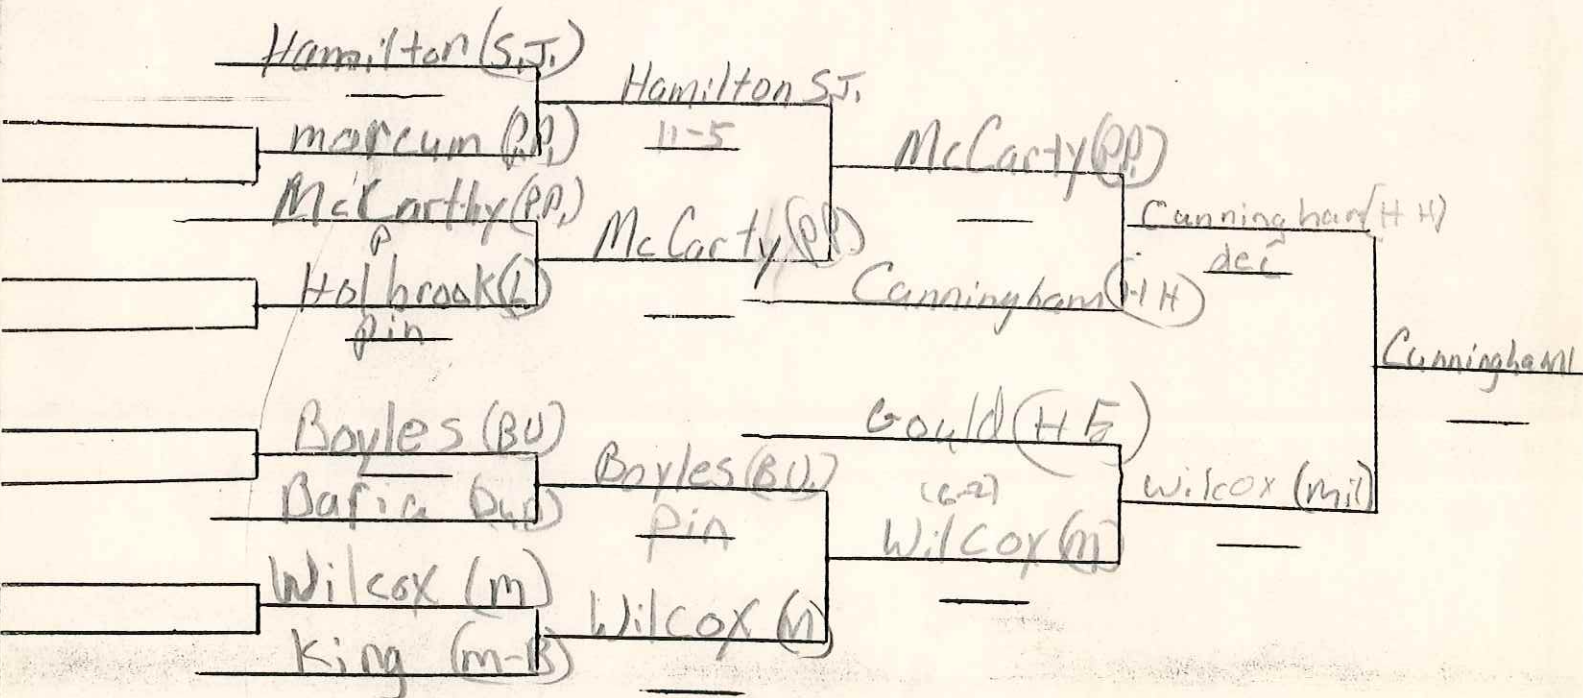 Hamilton (S.J.)
Marcum (P.P.)
McCarthy (P.P.)
P
Holbrook (L)
pin
Boyles (BU)
Bafia
Wilcox (m)
King (m-B)
Hamilton S.J.
11-5
McCarty (P.P.)
Boyles (B.U.)
pin
Wilcox (m)
McCarty (P.P.)
Cunningham (H H)
Gould (H F)
(6-2)
Wilcox (m)
Cunningham (H H)
dec
Wilcox (mil)
Cunningham